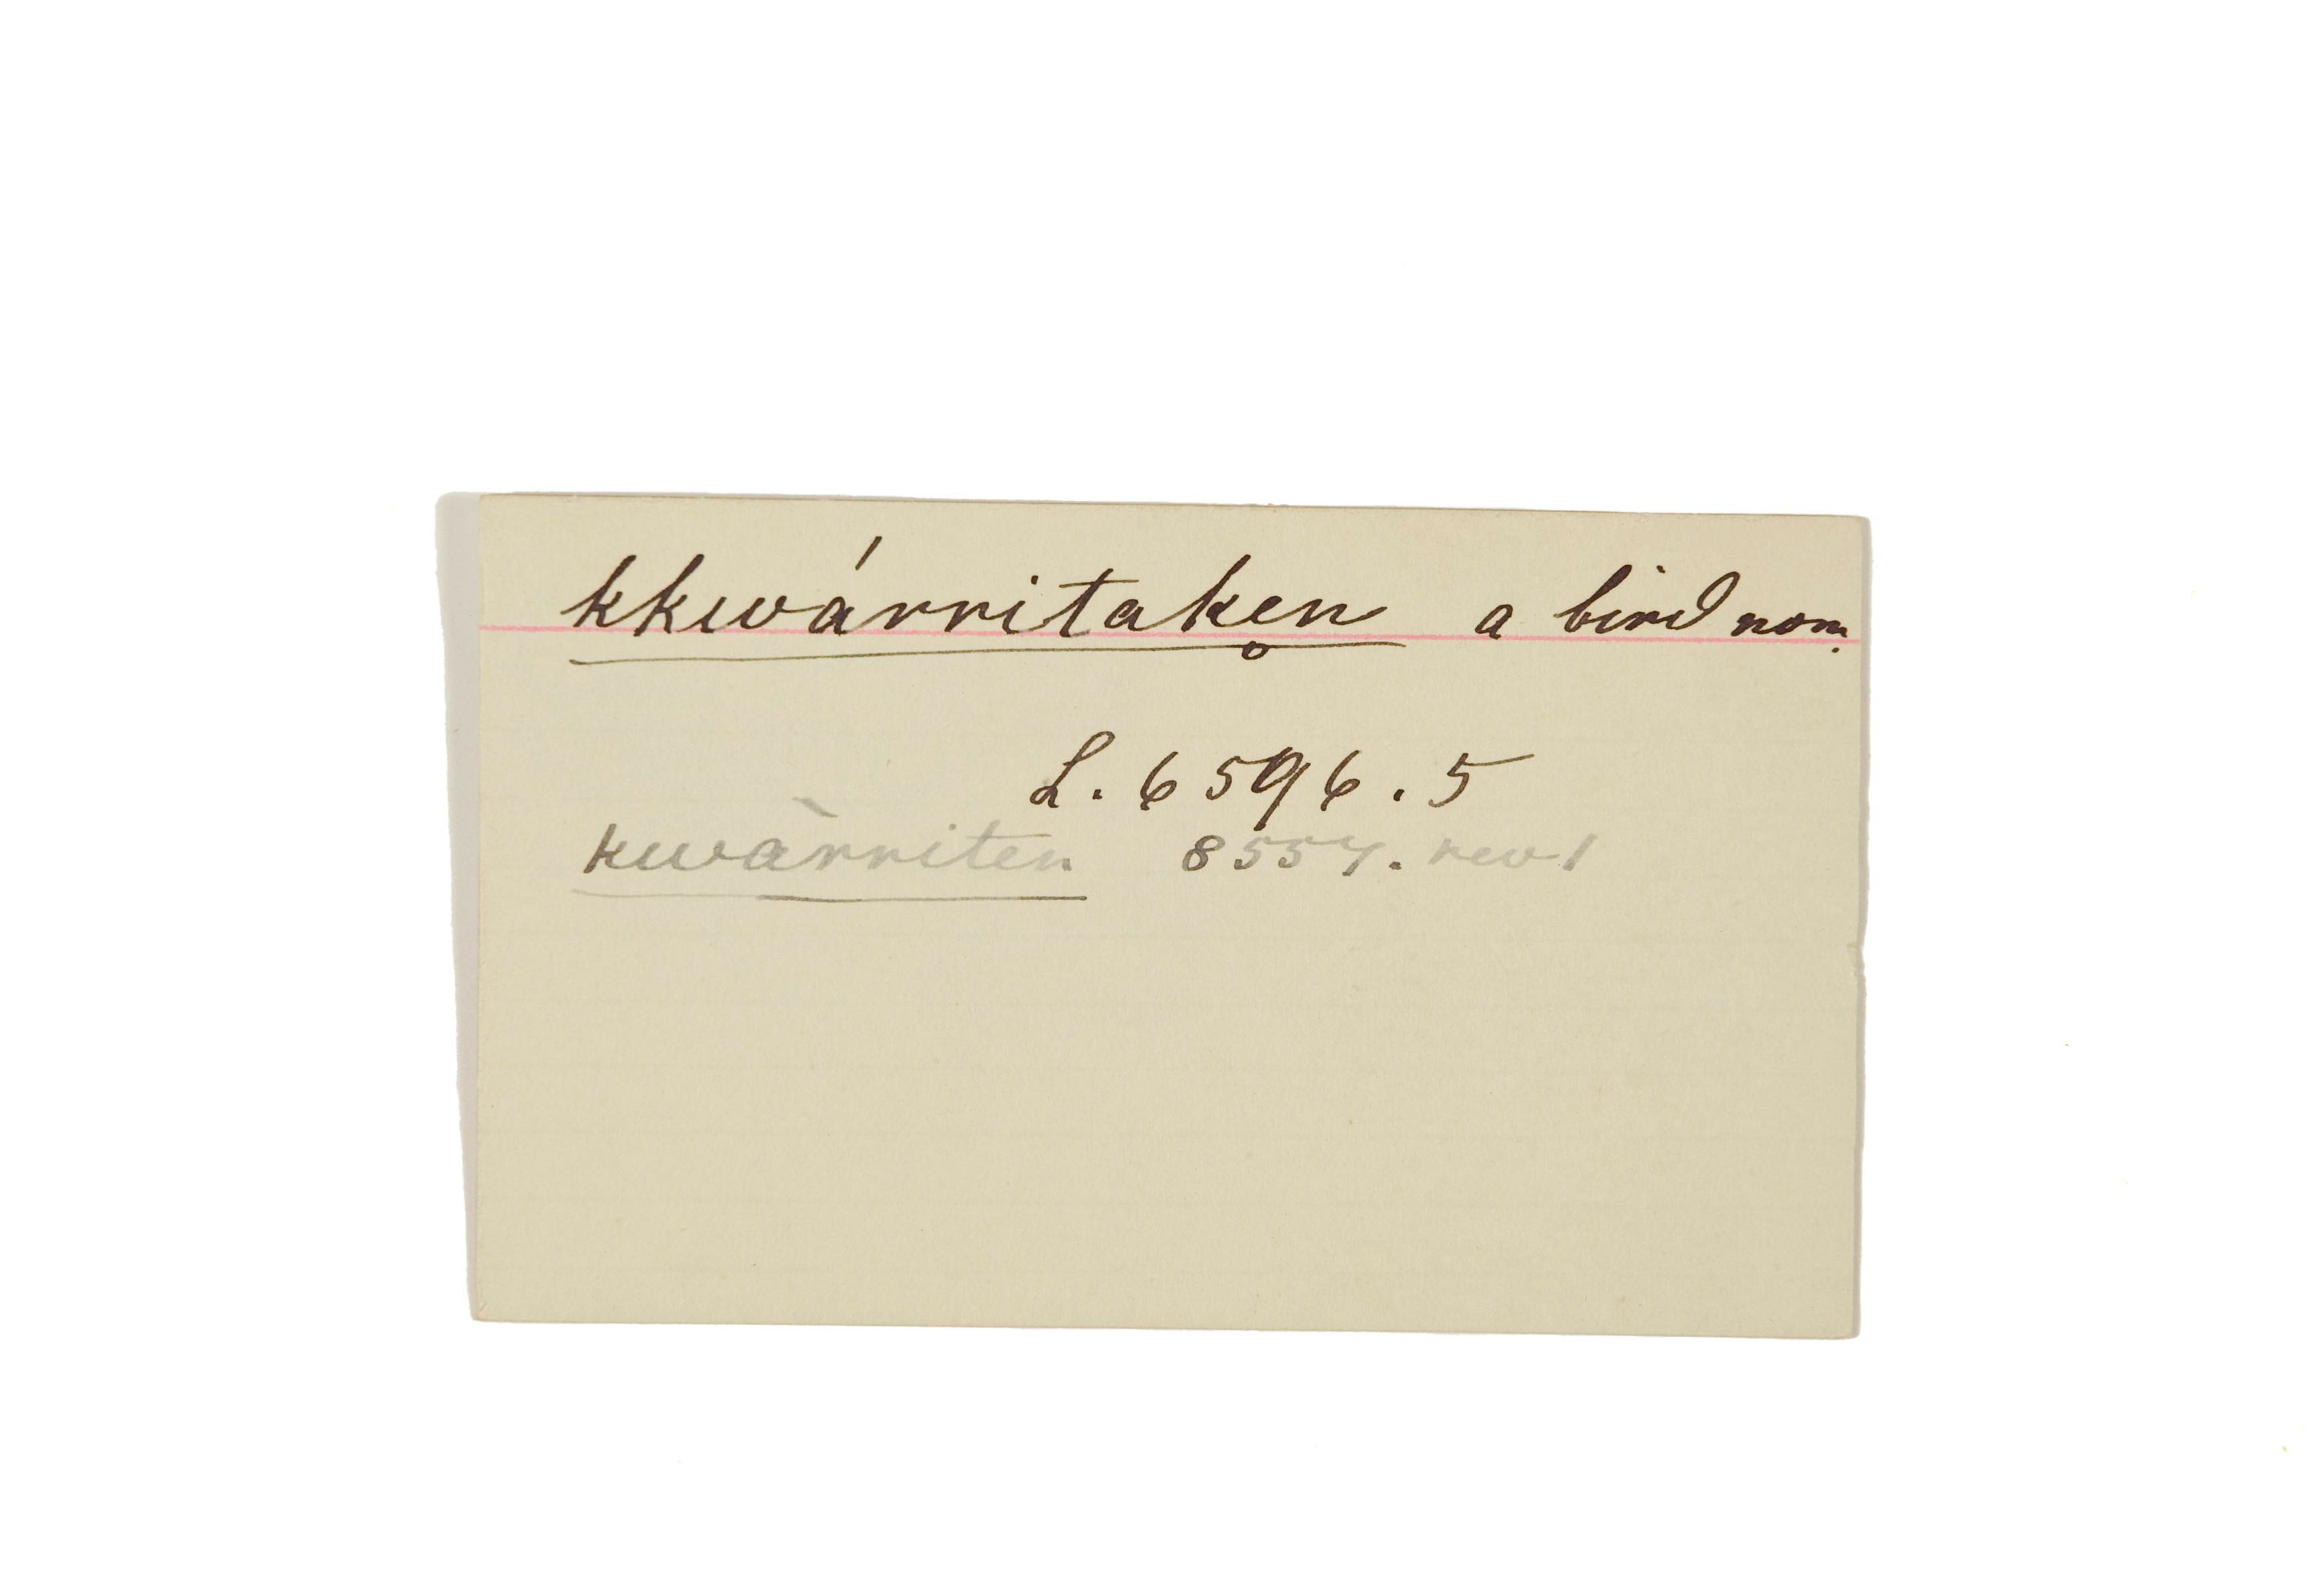 kkwárritake̥n a bird nom.
L. 6596.5
kwàrriten 8557. rev 1